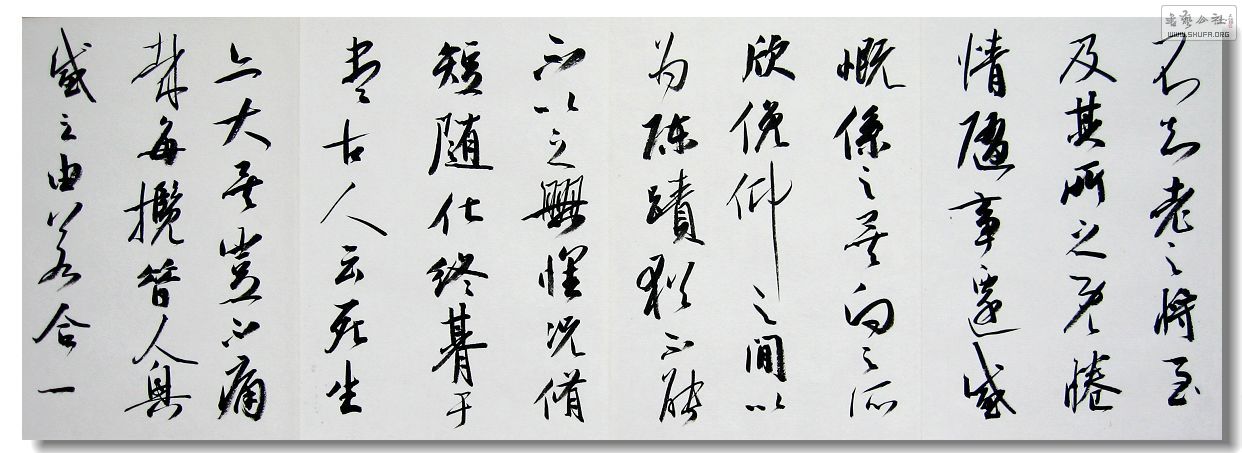 不知老之將至
及其所之既惓
情隨事遷感
慨係之矣向之所
欣俛仰之間以
為陳蹟猶不能
不以之興懷況脩
短隨化終朞于
盡古人云死生
亦大矣豈不痛
哉每攬昔人興
感之由若合一
書藝公社
WWW.SHUFA.ORG